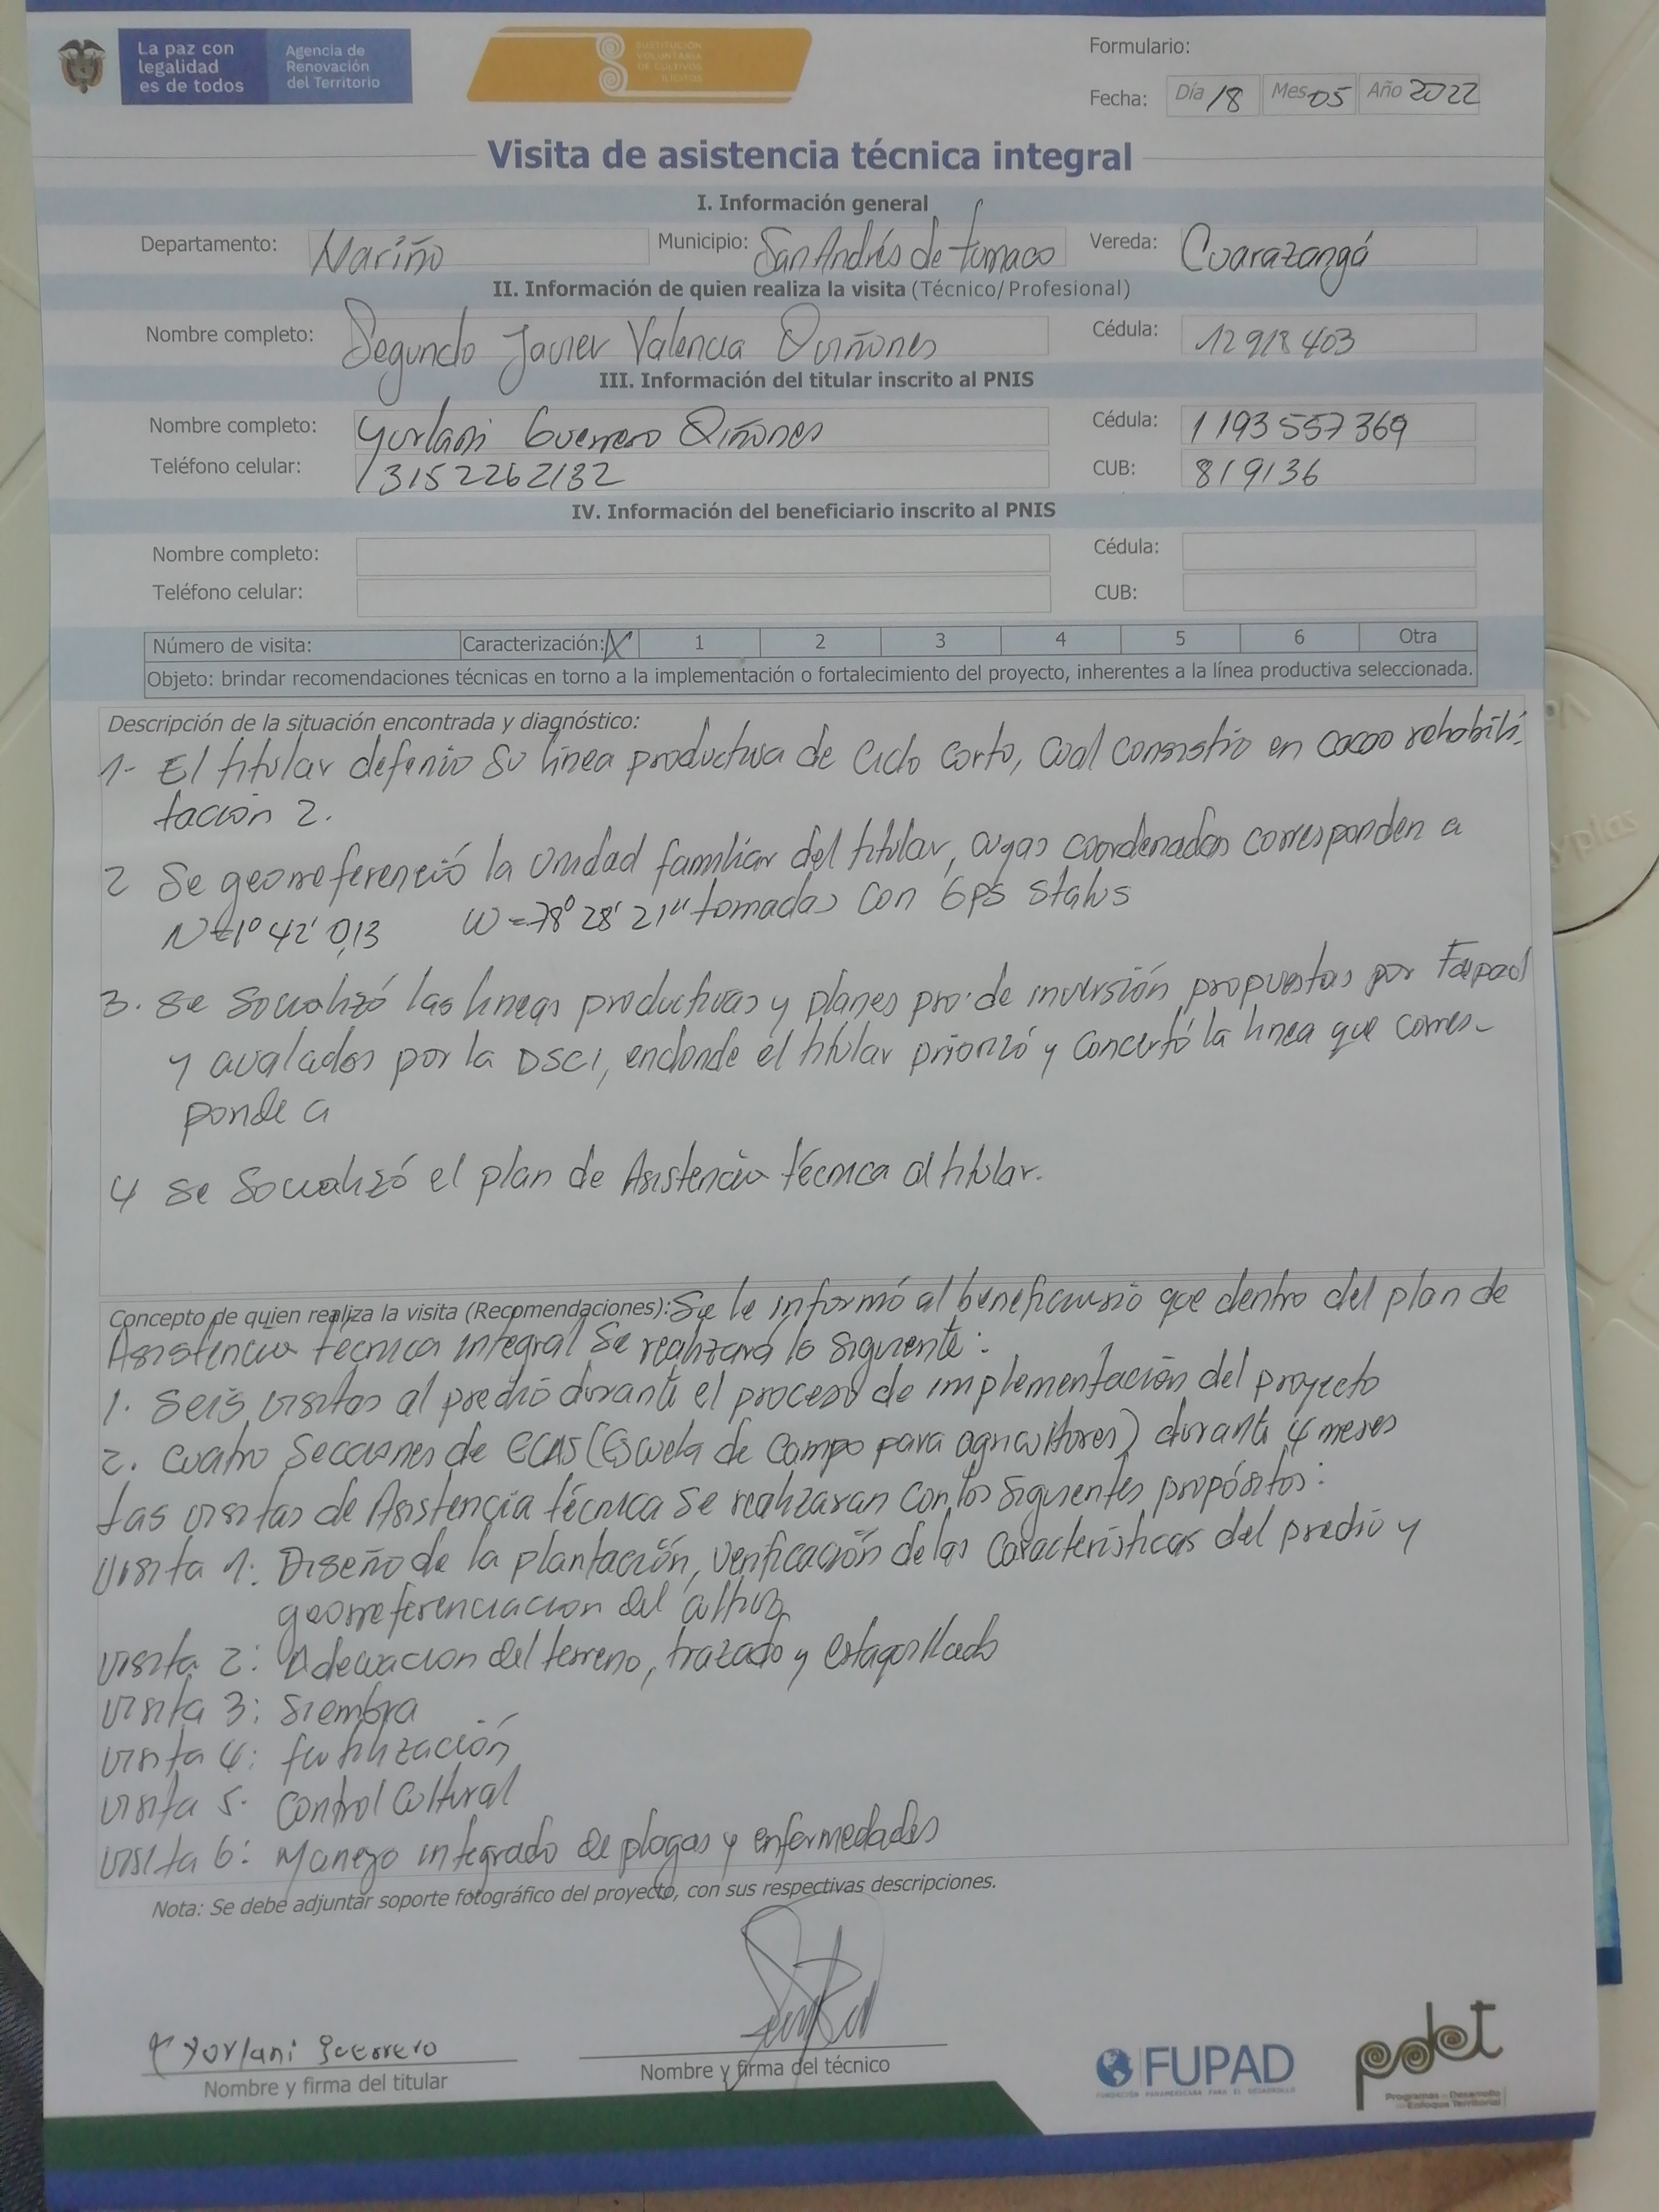 La paz con legalidad es de todos
Agencia de Renovación del Territorio
SUSTITUCIÓN VOLUNTARIA DE CULTIVOS ILÍCITOS
Formulario:
Fecha: Día 18 Mes 05 Año 2022
Visita de asistencia técnica integral
I. Información general
Departamento: Nariño Municipio: San Andrés de tumaco Vereda: Cuarazangá
II. Información de quien realiza la visita (Técnico/Profesional)
Nombre completo: Segundo Javier Valencia Quiñones Cédula: 12918403
III. Información del titular inscrito al PNIS
Nombre completo: Yurlani Guerrero Qiñones Cédula: 1193557369
Teléfono celular: 3152262132 CUB: 819136
IV. Información del beneficiario inscrito al PNIS
Nombre completo: Cédula:
Teléfono celular: CUB:
Número de visita: Caracterización: X 1 2 3 4 5 6 Otra
Objeto: brindar recomendaciones técnicas en torno a la implementación o fortalecimiento del proyecto, inherentes a la línea productiva seleccionada.
Descripción de la situación encontrada y diagnóstico:
1- El titular definio su linea productiva de Ciclo corto, cual consistio en cacao rehabili-
tación 2.
2 Se georreferenció la unidad familiar del titular, cuyas coordenadas corresponden a
N=1° 42' 0,13 W=78° 28' 21" tomadas con GPS status
3. se socializó las lineas productivas y planes pro. de inversión propuestas por Fupad
y avalados por la DSCI, endonde el titular priorizó y concertó la linea que corres-
ponde a
4 se Socializó el plan de Asistencia técnica al titular.
Concepto de quien realiza la visita (Recomendaciones): Se le informó al beneficiario que dentro del plan de
Asistencia técnica integral se realizará lo siguiente:
1. Seis visitas al predio durante el proceso de implementación del proyecto
2. cuatro Secciones de ECAS (Escuela de Campo para agricultores) durante 4 meses
Las visitas de Asistencia técnica se realizaran con los siguientes propósitos:
Visita 1: Diseño de la plantación, verificación de las características del predio y
georreferenciacion del cultivo
visita 2: Adecuacion del terreno, trazado y estaquillado
visita 3: siembra
visita 4: fertilización
visita 5. Control Cultural
visita 6: Manejo integrado de plagas y enfermedades
Nota: Se debe adjuntar soporte fotográfico del proyecto, con sus respectivas descripciones.
Yorlani Guerrero
Nombre y firma del titular
Nombre y firma del técnico
FUPAD
FUNDACIÓN PANAMERICANA PARA EL DESARROLLO
pdet
Programas de Desarrollo con Enfoque Territorial